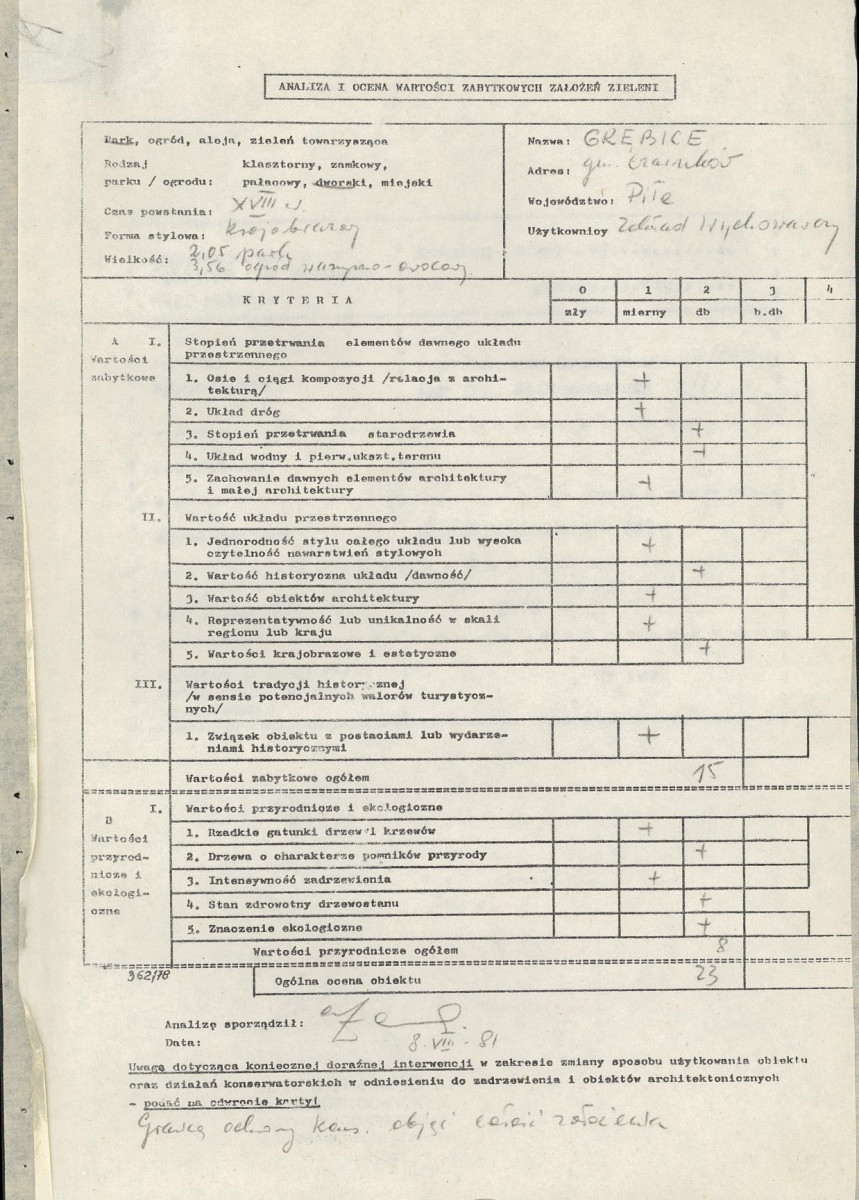 ANALIZA I OCENA WARTOŚCI ZABYTKOWYCH ZAŁOŻEŃ ZIELENI
Park, ogród, aleja, zieleń towarzysząca
Rodzaj klasztorny, zamkowy,
parku / ogrodu: pałacowy, dworski, miejski
Czas powstania: XVIII w.
Forma stylowa: krajobrazowy
Wielkość: 2,05 park
3,56 ogród warzywno-owocowy
Nazwa: GRĘBICE
Adres: gm. Czarnków
Województwo: Piła
Użytkownicy Zakład Wychowawczy
KRYTERIA 0 1 2 3 4
zły mierny db b.db
A I. Stopień przetrwania elementów dawnego układu
Wartości przestrzennego
zabytkowe
1. Osie i ciągi kompozycji /relacja z archi- +
tekturą/
2. Układ dróg +
3. Stopień przetrwania starodrzewia +
4. Układ wodny i pierw.ukszt.terenu +
5. Zachowanie dawnych elementów architektury +
i małej architektury
II. Wartość układu przestrzennego
1. Jednorodność stylu całego układu lub wysoka +
czytelność nawarstwień stylowych
2. Wartość historyczna układu /dawność/ +
3. Wartość obiektów architektury +
4. Reprezentatywność lub unikalność w skali +
regionu lub kraju
5. Wartości krajobrazowe i estetyczne +
III. Wartości tradycji historycznej
/w sensie potencjalnych walorów turystycz-
nych/
1. Związek obiektu z postaciami lub wydarze- +
niami historycznymi
Wartości zabytkowe ogółem 15
I. Wartości przyrodnicze i ekologiczne
B
Wartości
przyrod-
nicze i
ekologi-
czne
1. Rzadkie gatunki drzew i krzewów +
2. Drzewa o charakterze pomników przyrody +
3. Intensywność zadrzewienia +
4. Stan zdrowotny drzewostanu +
5. Znaczenie ekologiczne +
Wartości przyrodnicze ogółem 8
362/78
Ogólna ocena obiektu 23
Analizę sporządził:
Data: 8.VIII-81
Uwagę dotyczącą koniecznej doraźnej interwencji w zakresie zmiany sposobu użytkowania obiektu
oraz działań konserwatorskich w odniesieniu do zadrzewienia i obiektów architektonicznych
- podać na odwrocie karty!
Granicą ochrony kons. objąć całość założenia